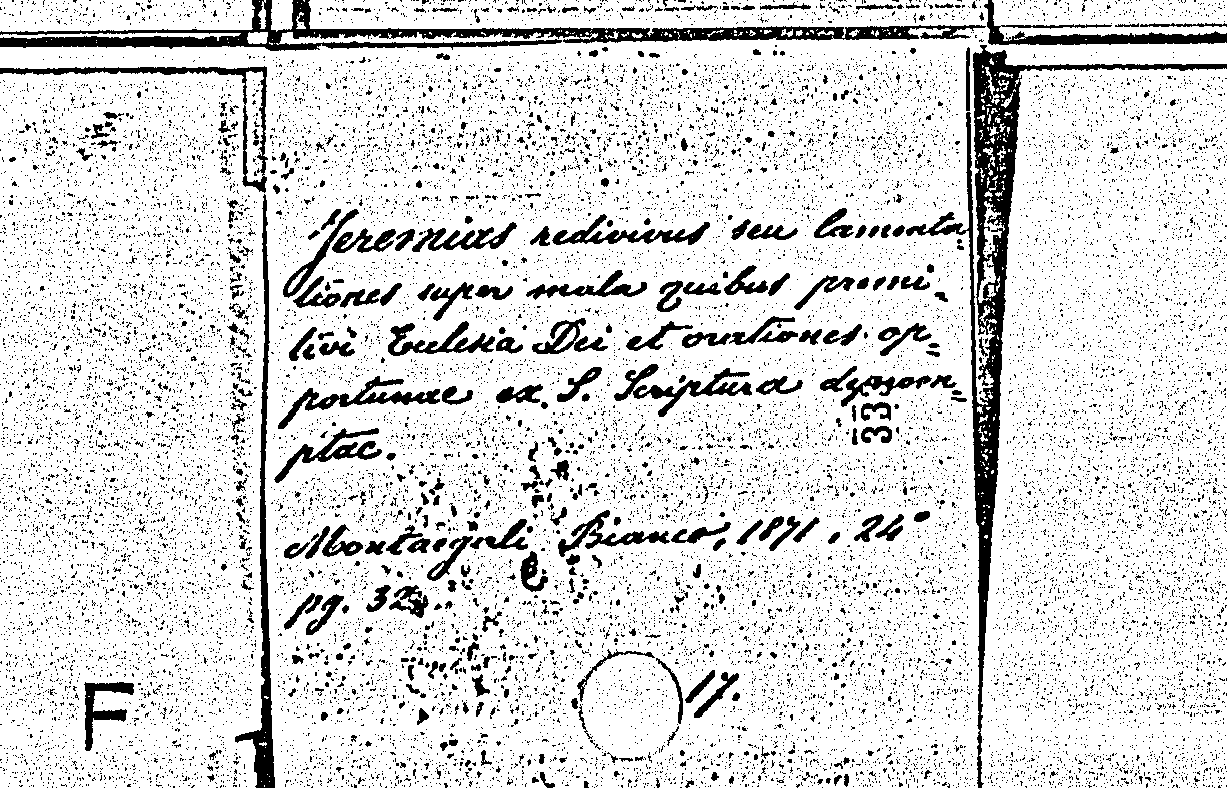 Jeremias redivivus seu lamenta=
tiones super mala quibus premi=
tivi Ecclesia Dei et orationes op=
portunae ex S. Scriptura
ptae.
33
Bianco, 1871, 24°
pg. 32
17.
F